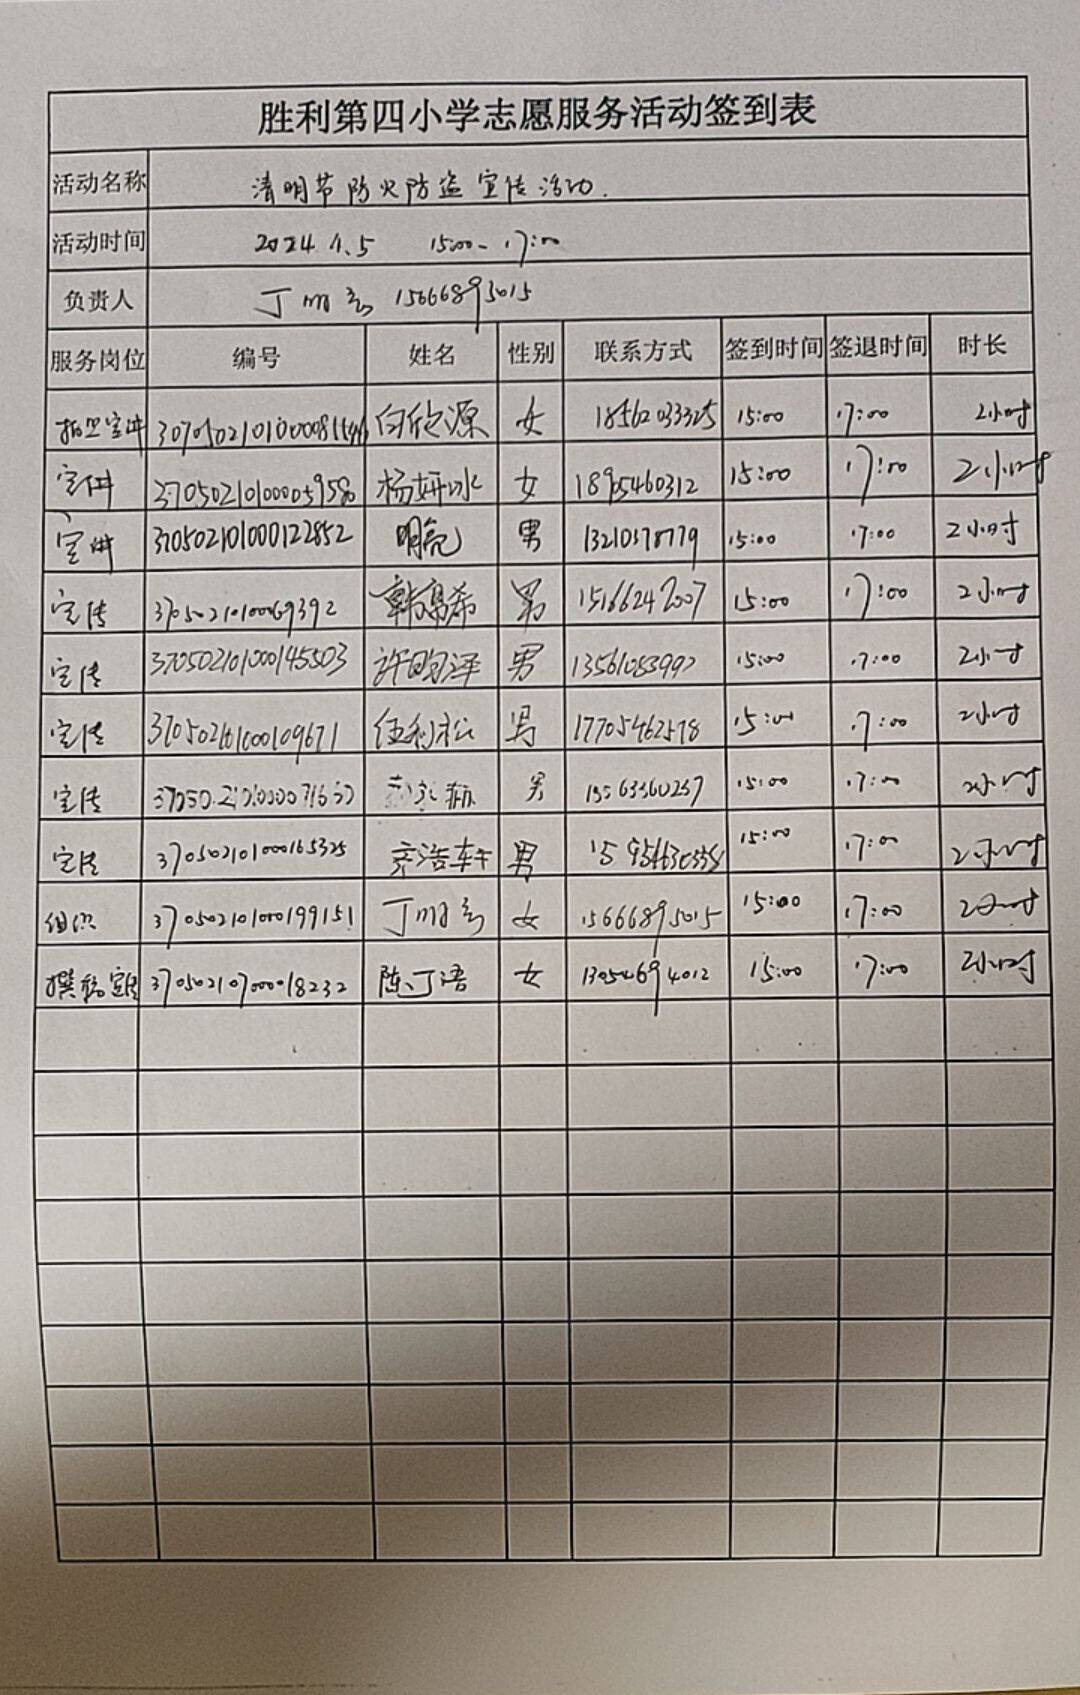 胜利第四小学志愿服务活动签到表
活动名称 清明节防火防盗宣传活动.
活动时间 2024.4.5 15:00-17:00
负责人 丁 15666895015
服务岗位 编号 姓名 性别 联系方式 签到时间 签退时间 时长
拍照宣讲 白欣源 女 18562033325 15:00 17:00 2小时
宣讲 杨妍冰 女 18905460312 15:00 17:00 2小时
宣讲 370502101000122852 明亮 男 15:00 17:00 2小时
宣传 韩禹希 男 15166242007 15:00 17:00 2小时
宣传 370502101000145503 许昀泽 男 15:00 17:00 2小时
宣传 370502101000109671 伍利松 男 17705462578 15:00 17:00 2小时
宣传 男 15:00 17:00 2小时
宣传 370502101000165325 齐浩轩 男 15:00 17:00 2小时
组织 370502101000199151 丁 女 15666895015 15:00 17:00 2小时
撰稿宣传 陈丁语 女 13054694012 15:00 17:00 2小时